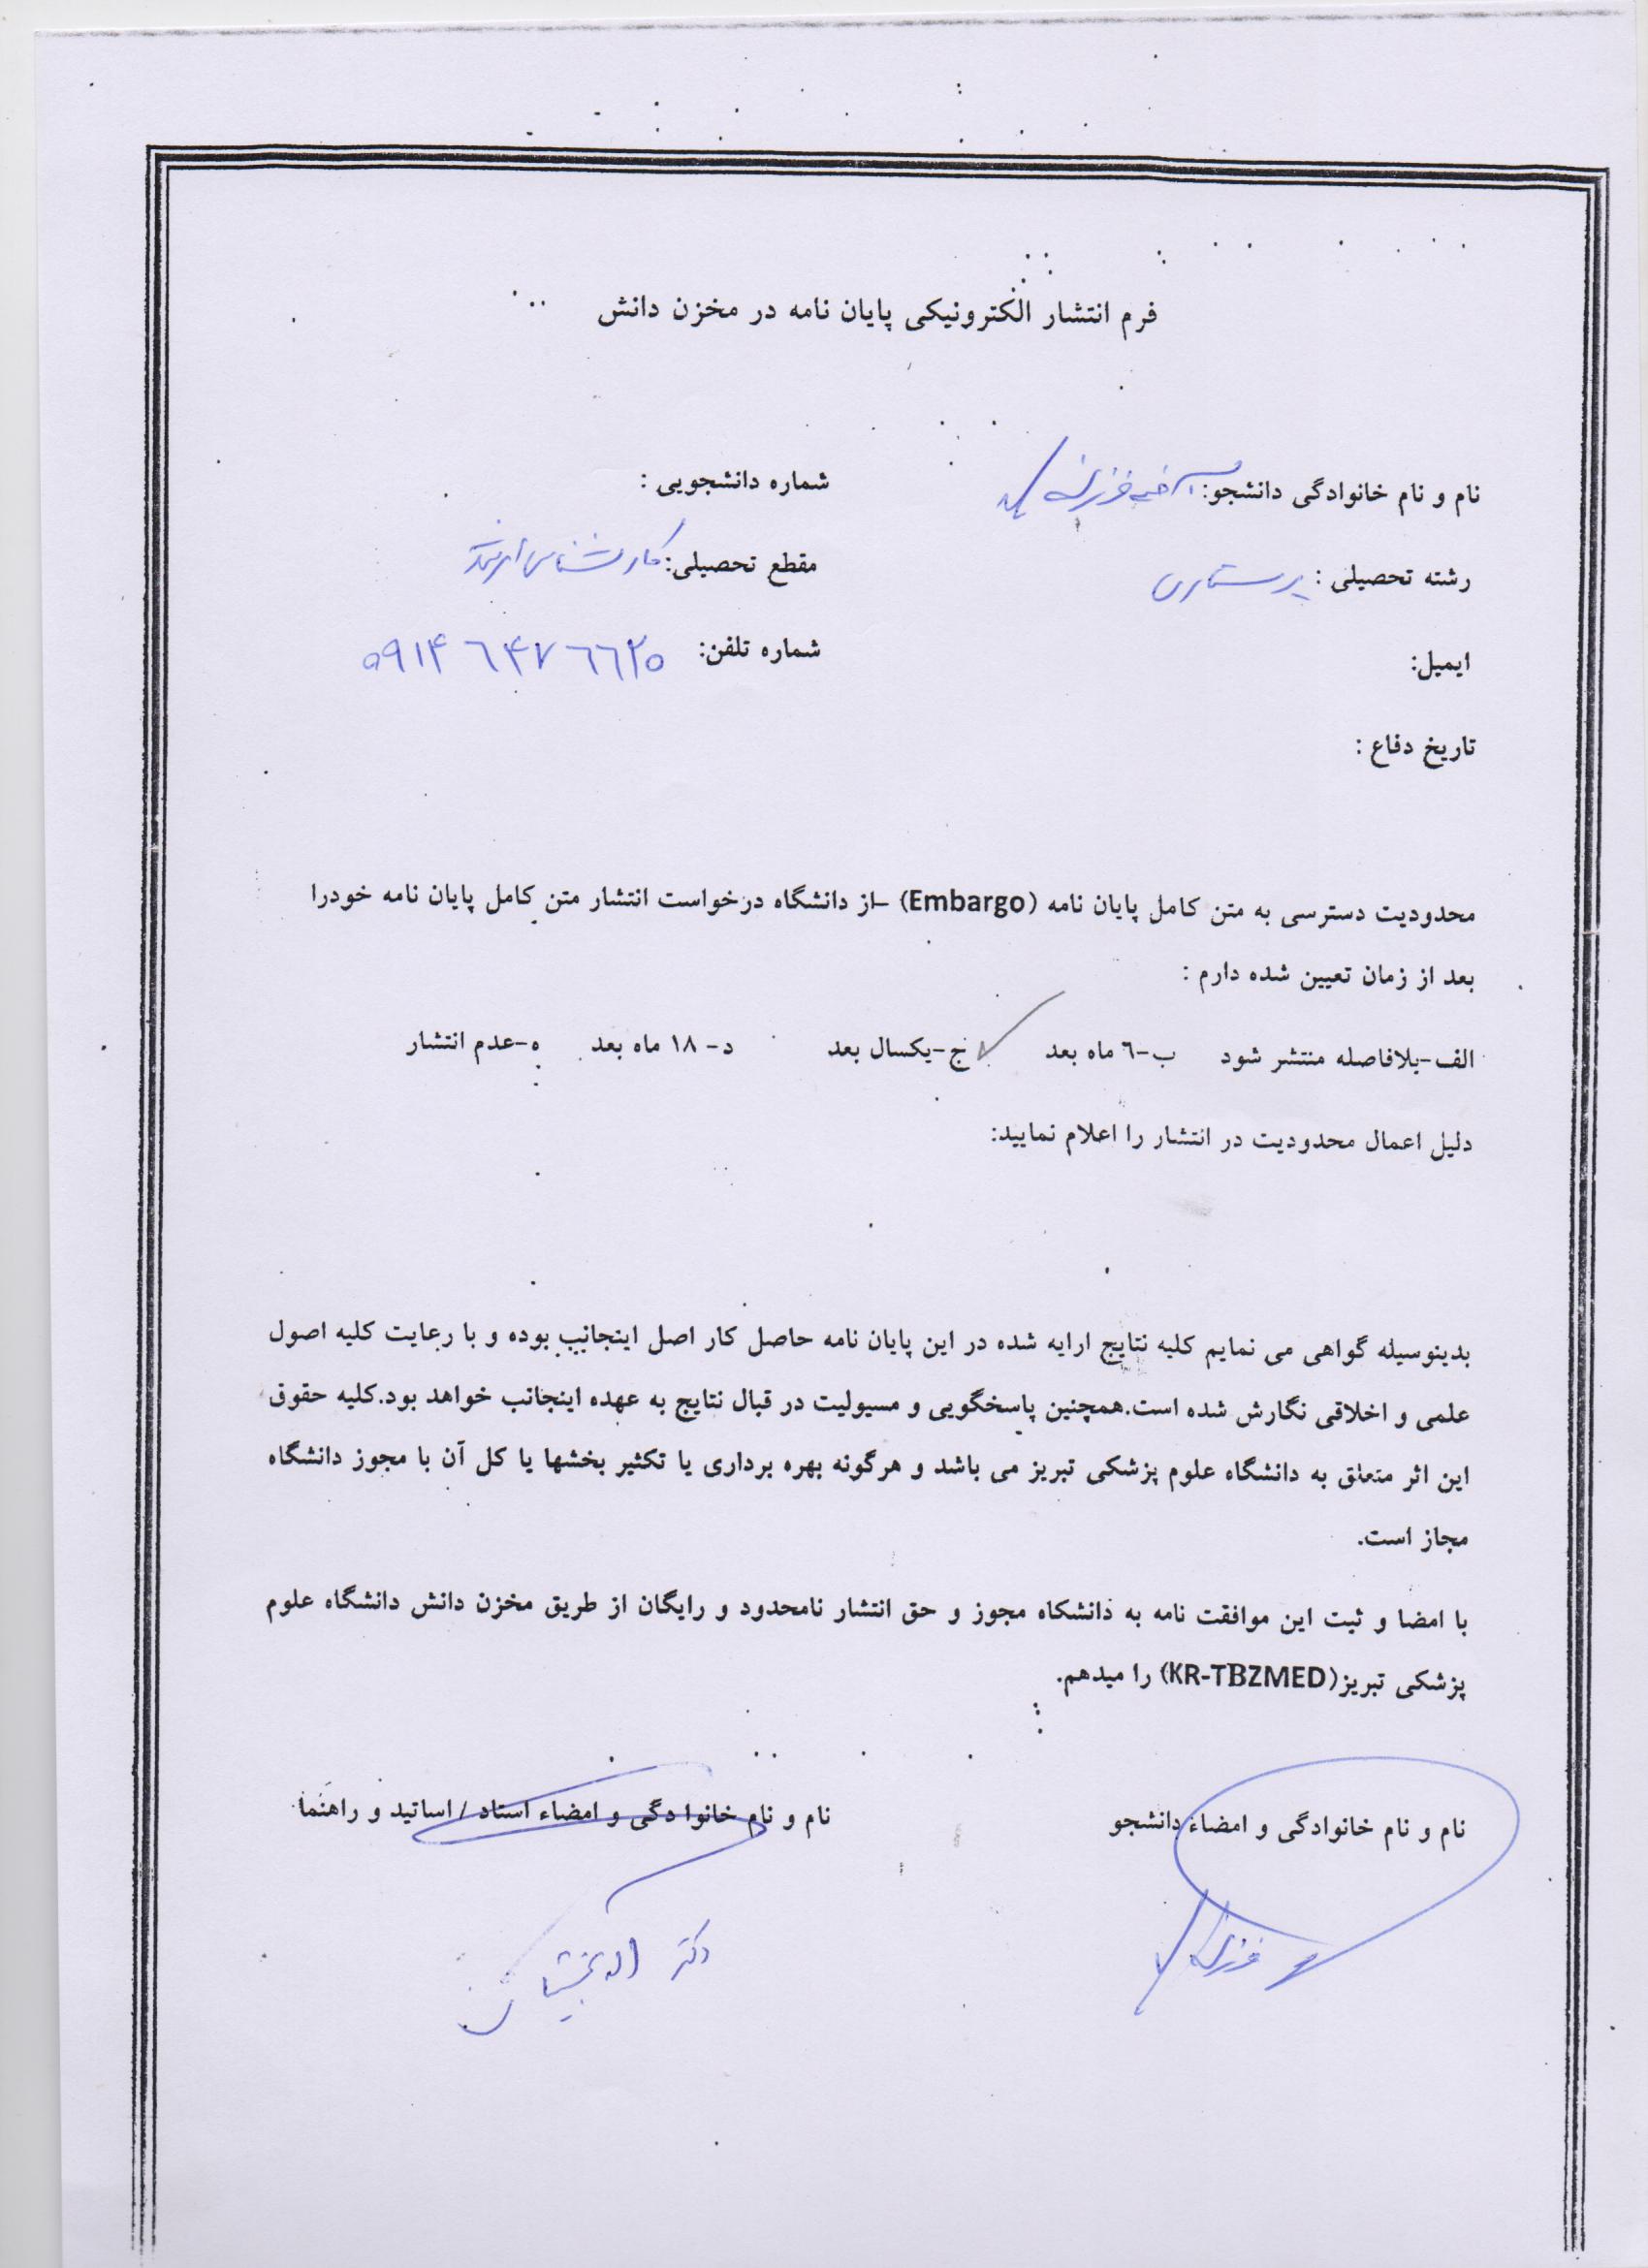 فرم انتشار الکترونیکی پایان نامه در مخزن دانش
نام و نام خانوادگی دانشجو: شماره دانشجویی :
رشته تحصیلی : پرستاری مقطع تحصیلی: کارشناسی ارشد
ایمیل: شماره تلفن: ۰۹۱۴ ۶۴۷ ۶۶۲۰
تاریخ دفاع :
محدودیت دسترسی به متن کامل پایان نامه (Embargo) –از دانشگاه درخواست انتشار متن کامل پایان نامه خودرا
بعد از زمان تعیین شده دارم :
الف-بلافاصله منتشر شود ب-۶ ماه بعد ج-یکسال بعد د- ۱۸ ماه بعد ه-عدم انتشار
دلیل اعمال محدودیت در انتشار را اعلام نمایید:
بدینوسیله گواهی می نمایم کلیه نتایج ارایه شده در این پایان نامه حاصل کار اصل اینجانب بوده و با رعایت کلیه اصول
علمی و اخلاقی نگارش شده است.همچنین پاسخگویی و مسیولیت در قبال نتایج به عهده اینجانب خواهد بود.کلیه حقوق
این اثر متعلق به دانشگاه علوم پزشکی تبریز می باشد و هرگونه بهره برداری یا تکثیر بخشها یا کل آن با مجوز دانشگاه
مجاز است.
با امضا و ثبت این موافقت نامه به دانشکاه مجوز و حق انتشار نامحدود و رایگان از طریق مخزن دانش دانشگاه علوم
پزشکی تبریز(KR-TBZMED) را میدهم.
نام و نام خانوادگی و امضاء دانشجو نام و نام خانوادگی و امضاء استاد / اساتید و راهنما
دکتر